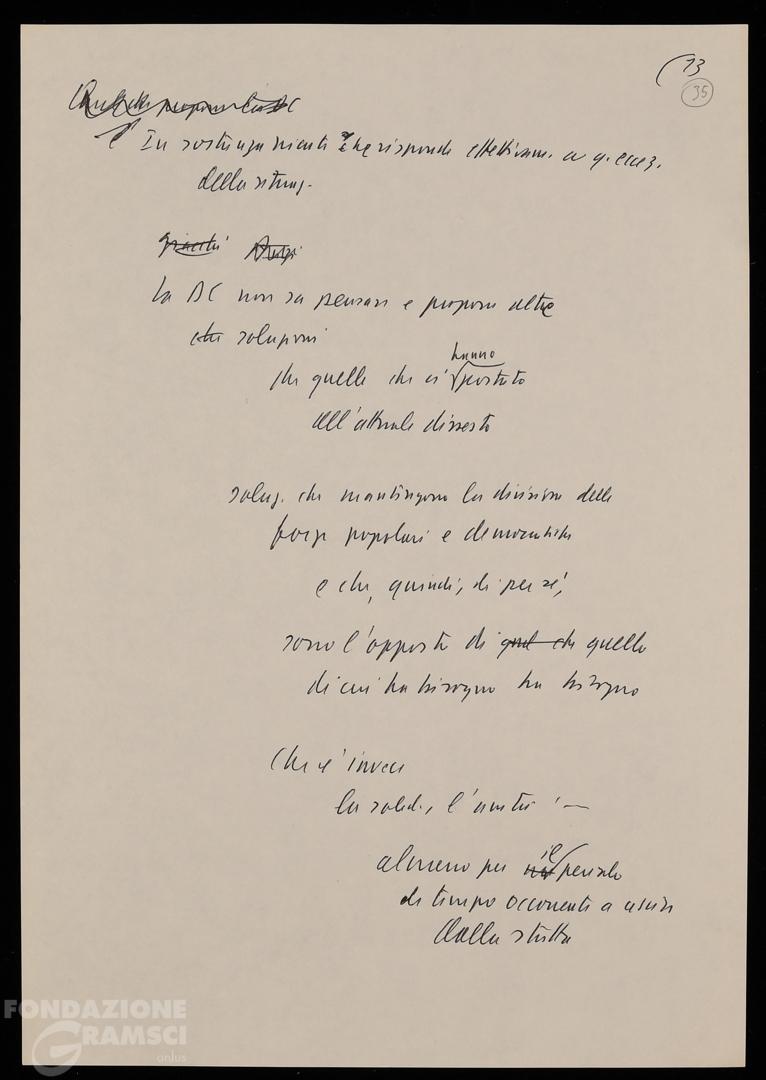 13
35
Quello che propone la DC
È In sostanza niente che risponda effettivam. a q. eccez.
della situaz.
giacché
La DC non sa pensare e proporre altre
che soluzioni
hanno
che quelle che ci portato
all'attuale dissesto
soluz. che mantengono la divisione delle
forze popolari e democratiche
e che, quindi, di per sé,
sono l'opposto di quel che quello
di cui ha bisogno ha bisogno
Che è invece
la solid., l'unità –
il
almeno per periodo
di tempo occorrente a uscire
dalla stretta
FONDAZIONE
GRAMSCI
onlus